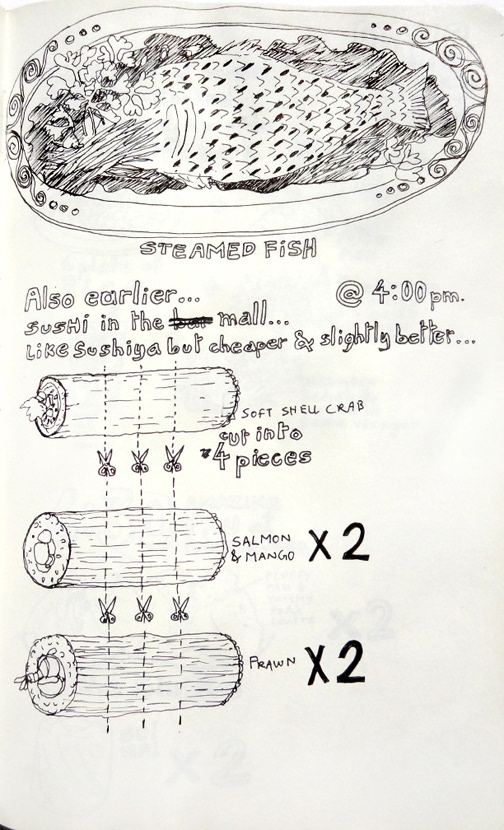 STEAMED FISH
Also earlier... @ 4:00pm.
SUSHi in the bar mall...
Like Sushiya but cheaper & slightly better...
SOFT SHELL CRAB
cut into
4 pieces
SALMON
& MANGO X2
PRAWN X2